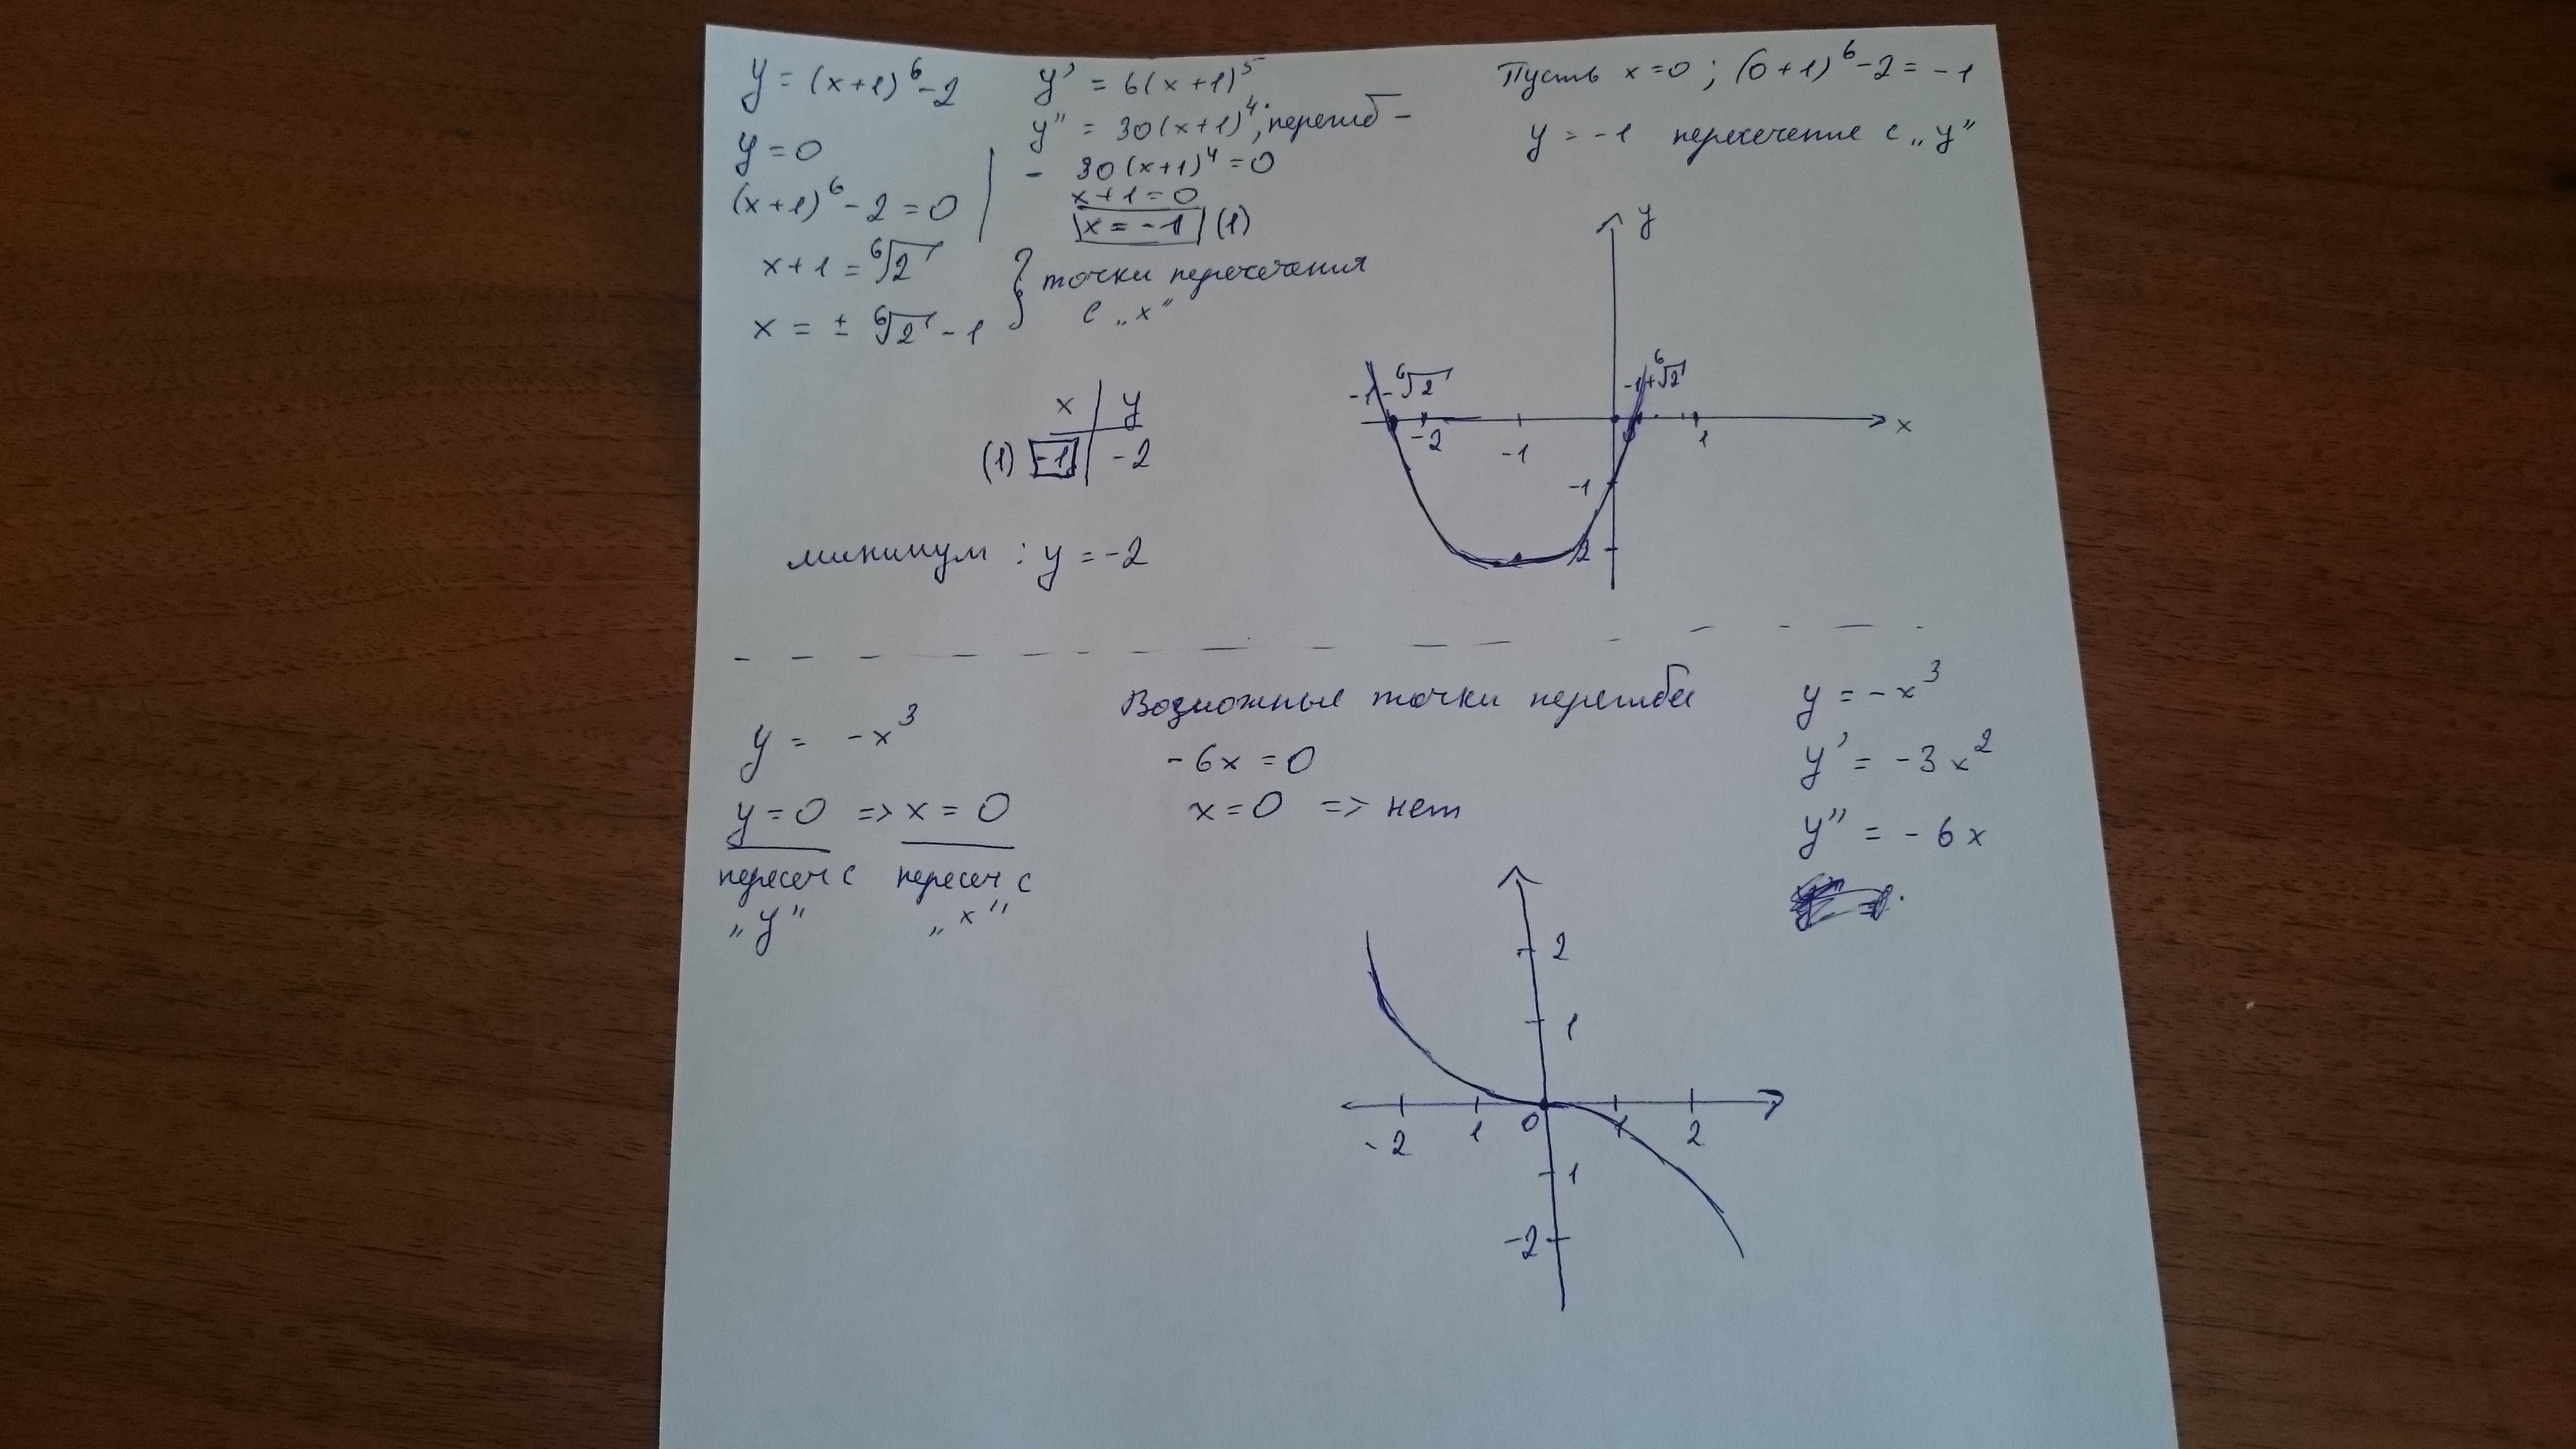 y = (x+1)⁶ - 2
y = 0
(x+1)⁶ - 2 = 0
x + 1 = ⁶√2
x = ± ⁶√2 - 1
y' = 6(x+1)⁵
y'' = 30(x+1)⁴; перегиб -
- 30(x+1)⁴ = 0
x + 1 = 0
x = -1 (1)
} точки пересечения
с „x"
Пусть x = 0; (0+1)⁶ - 2 = -1
y = -1 пересечение с „y"
x | y
(1) -1 | -2
минимум : y = -2
y
-1 - ⁶√2
-1 + ⁶√2
-2 -1 0 1 x
-1
-2
y = -x³
y = 0 => x = 0
пересеч с пересеч с
„y" „x"
Возможные точки перегиба
-6x = 0
x = 0 => нет
y = -x³
y' = -3x²
y'' = -6x
2
1
-2 1 0 1 2
1
-2